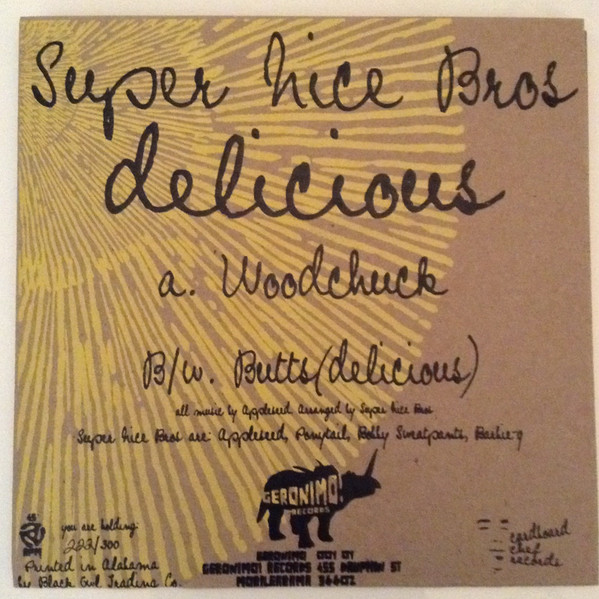 Super Nice Bros
delicious
a. Woodchuck
B/w. Butts (delicious)
all music by Appleseed. Arranged by Super Nice Bros
Super Nice Bros are: Appleseed, Ponytail, Bobby Sweatpants, Barbie-q
GERONIMO!
RECORDS
45
you are holding:
222/300
Printed in Alabama
by Black Owl Trading Co.
GERONIMO 001 BY
GERONIMO! RECORDS 455 DAUPHIN ST
MOBILEBAMA 36602
cardboard
chef
records